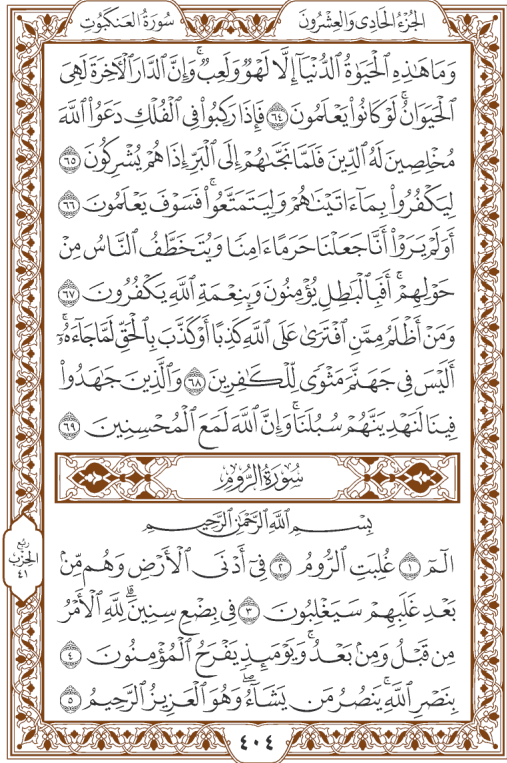 سُورَةُ العَنكَبُوتِ
الجُزْءُ الحَادِى وَالعِشْرُونَ
وَمَا هَٰذِهِ ٱلْحَيَوٰةُ ٱلدُّنْيَآ إِلَّا لَهْوٌ وَلَعِبٌ ۚ وَإِنَّ ٱلدَّارَ ٱلْأَخِرَةَ لَهِىَ
ٱلْحَيَوَانُ ۚ لَوْ كَانُوا۟ يَعْلَمُونَ ٦٤ فَإِذَا رَكِبُوا۟ فِى ٱلْفُلْكِ دَعَوُا۟ ٱللَّهَ
مُخْلِصِينَ لَهُ ٱلدِّينَ فَلَمَّا نَجَّىٰهُمْ إِلَى ٱلْبَرِّ إِذَا هُمْ يُشْرِكُونَ ٦٥
لِيَكْفُرُوا۟ بِمَآ ءَاتَيْنَٰهُمْ وَلِيَتَمَتَّعُوا۟ ۖ فَسَوْفَ يَعْلَمُونَ ٦٦
أَوَلَمْ يَرَوْا۟ أَنَّا جَعَلْنَا حَرَمًا ءَامِنًا وَيُتَخَطَّفُ ٱلنَّاسُ مِنْ
حَوْلِهِمْ ۚ أَفَبِٱلْبَٰطِلِ يُؤْمِنُونَ وَبِنِعْمَةِ ٱللَّهِ يَكْفُرُونَ ٦٧
وَمَنْ أَظْلَمُ مِمَّنِ ٱفْتَرَىٰ عَلَى ٱللَّهِ كَذِبًا أَوْ كَذَّبَ بِٱلْحَقِّ لَمَّا جَآءَهُۥٓ ۚ
أَلَيْسَ فِى جَهَنَّمَ مَثْوًى لِّلْكَٰفِرِينَ ٦٨ وَٱلَّذِينَ جَٰهَدُوا۟
فِينَا لَنَهْدِيَنَّهُمْ سُبُلَنَا ۚ وَإِنَّ ٱللَّهَ لَمَعَ ٱلْمُحْسِنِينَ ٦٩
سُورَةُ الرُّومِ
بِسْمِ ٱللَّهِ ٱلرَّحْمَٰنِ ٱلرَّحِيمِ
الٓمٓ ١ غُلِبَتِ ٱلرُّومُ ٢ فِىٓ أَدْنَى ٱلْأَرْضِ وَهُم مِّنۢ
بَعْدِ غَلَبِهِمْ سَيَغْلِبُونَ ٣ فِى بِضْعِ سِنِينَ ۗ لِلَّهِ ٱلْأَمْرُ
مِن قَبْلُ وَمِنۢ بَعْدُ ۚ وَيَوْمَئِذٍ يَفْرَحُ ٱلْمُؤْمِنُونَ ٤
بِنَصْرِ ٱللَّهِ ۚ يَنصُرُ مَن يَشَآءُ ۖ وَهُوَ ٱلْعَزِيزُ ٱلرَّحِيمُ ٥
رُبع
الحِزْب
٤١
٤٠٤